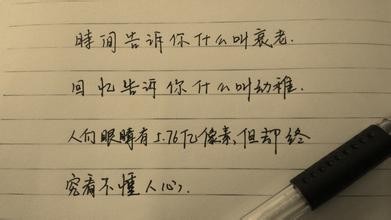 時间告诉你什么叫衰老.
回忆告诉你什么叫幼稚.
人的眼睛有5.76亿像素,但却终
究看不懂人心.